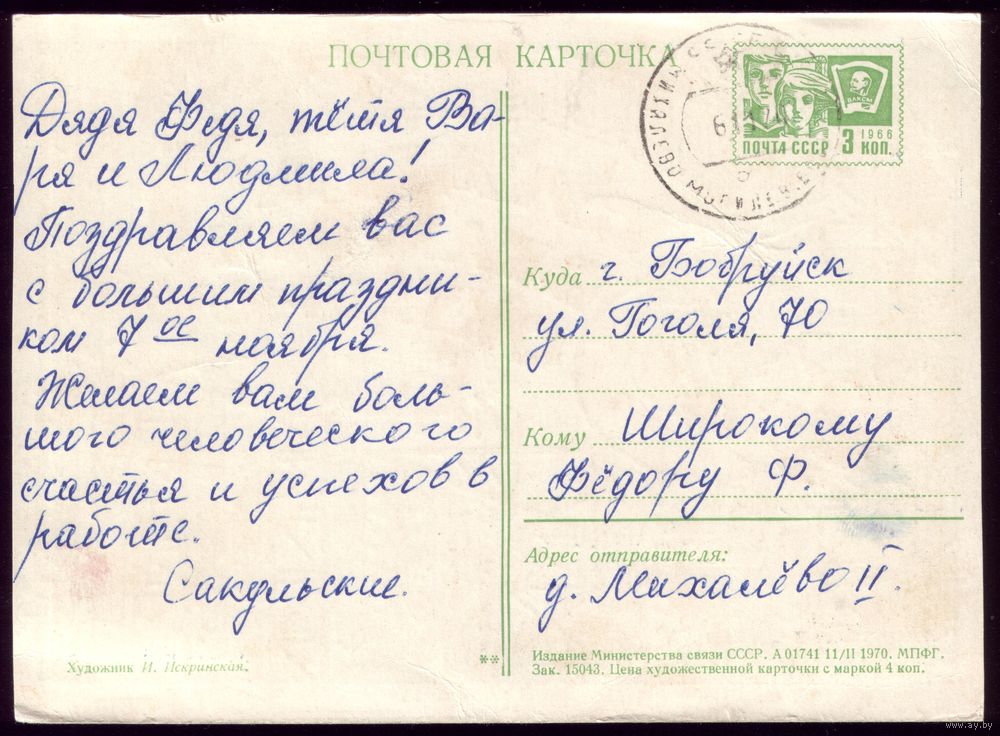 ПОЧТОВАЯ КАРТОЧКА
Дядя Федя, тётя Ва-
ря и Людмила!
Поздравляем вас
с большим праздни-
ком 7ое ноября.
Желаем вам боль-
шого человеческого
счастья и успехов в
работе.
Сакульские.
Художник И. Искринская.
**
ВЛКСМ
1966
ПОЧТА СССР 3 КОП.
Куда г. Бобруйск
ул. Гоголя, 70
Кому Широкому
Фёдору Ф.
Адрес отправителя:
д. Михалёво II.
Издание Министерства связи СССР. А 01741 11/II 1970. МПФГ.
Зак. 15043. Цена художественной карточки с маркой 4 коп.
www.ay.by